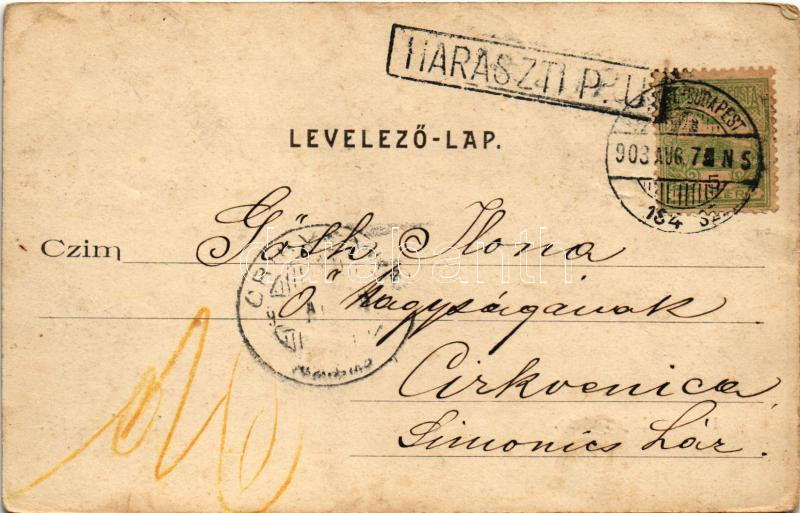 HARASZTI P. U.
LEVELEZŐ-LAP.
BUDAPEST
903 AUG. 7 N 5
154 SZ.
Czim
Góth Ilona
Ő Nagyságának
Cirkvenica
Simonics ház.
CRKVENICA
darabanth